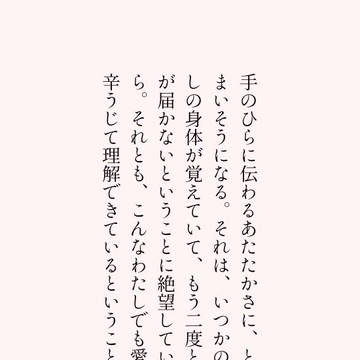 手のひらに伝わるあたたかさに、と
まいそうになる。それは、いつかの
しの身体が覚えていて、もう二度と
が届かないということに絶望してい
ら。それとも、こんなわたしでも愛
辛うじて理解できているということ